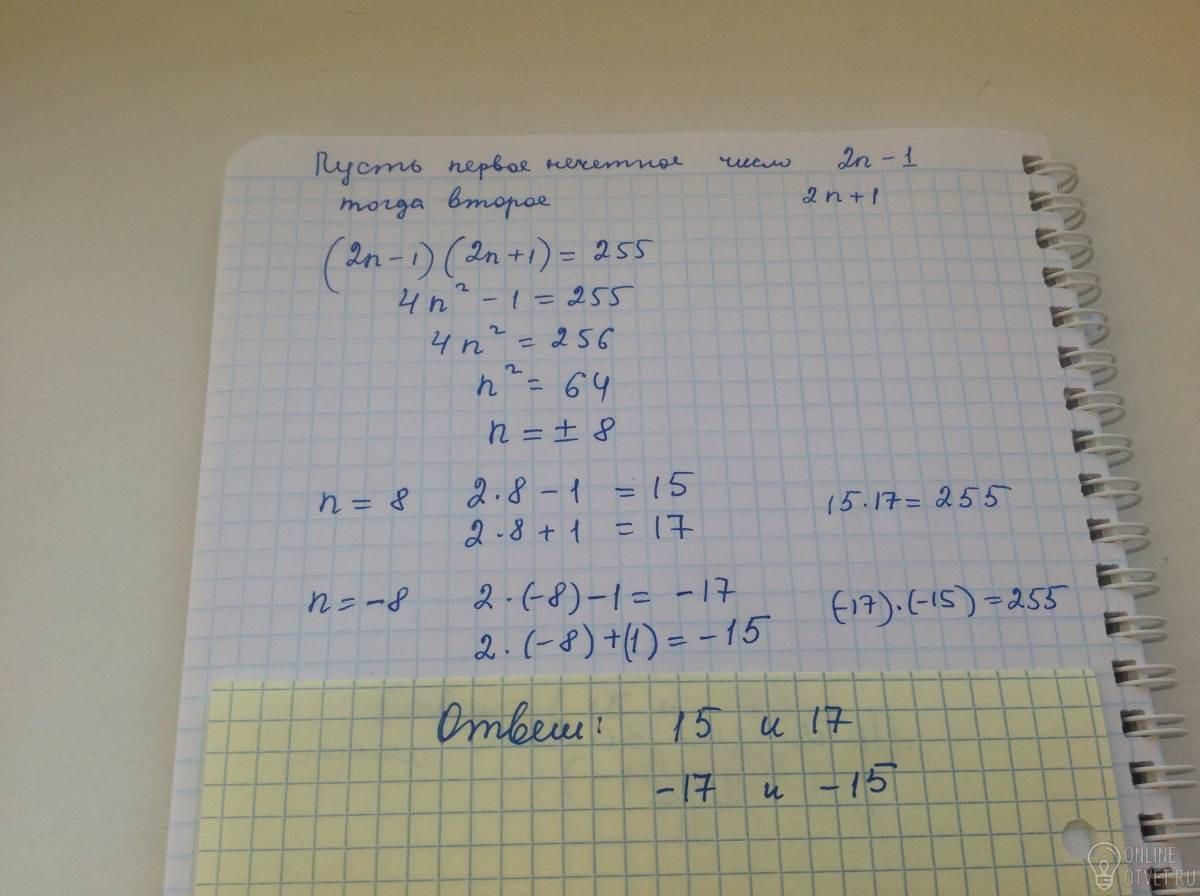 Пусть первое нечетное число 2n - 1
тогда второе 2n + 1
(2n - 1) (2n + 1) = 255
4n² - 1 = 255
4n² = 256
n² = 64
n = ± 8
n = 8 2·8 - 1 = 15 15·17 = 255
2·8 + 1 = 17
n = -8 2·(-8) - 1 = -17 (-17)·(-15) = 255
2·(-8) + (1) = -15
Ответ: 15 и 17
-17 и -15
ONLINE
OTVET.RU